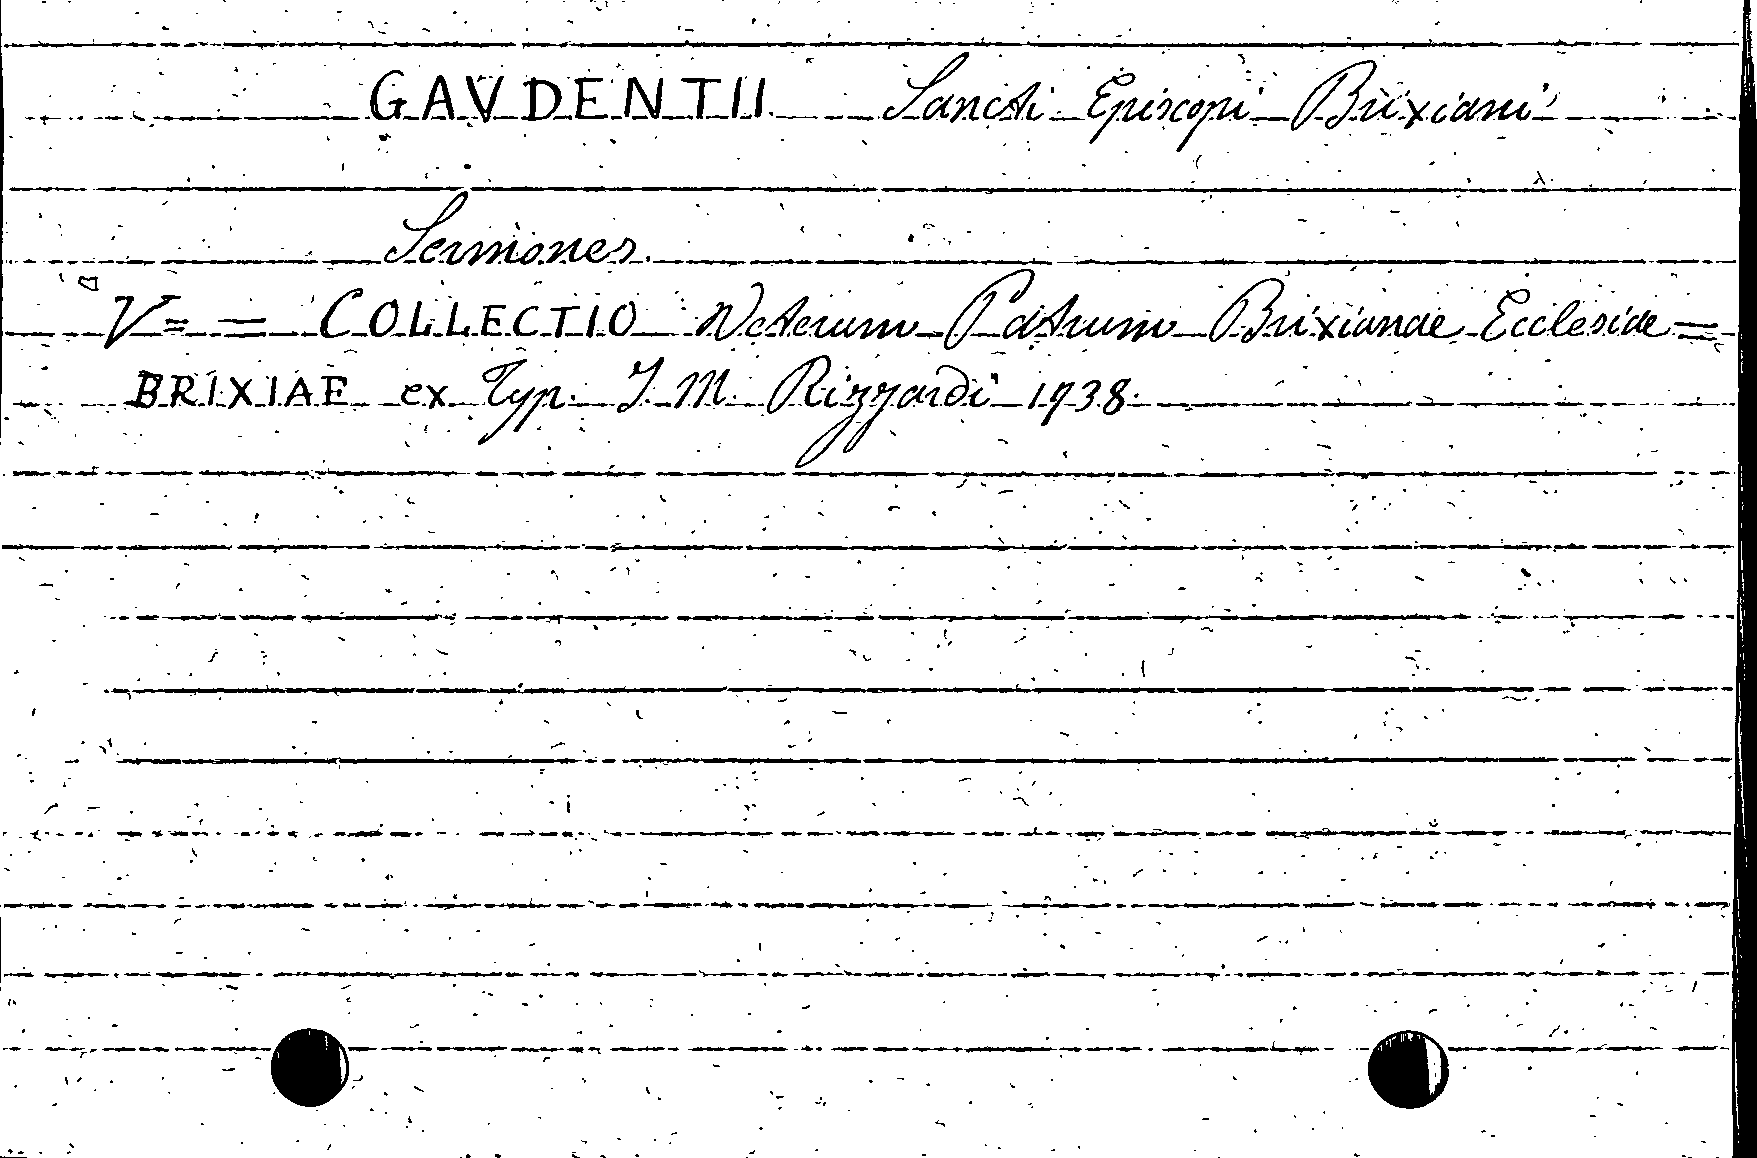 GAVDENTII Sancti Episcopi Brixiani
Sermones.
V= = COLLECTIO Veterum Patrum Brixianae Ecclesiae =
BRIXIAE ex Typ. J. M. Rizzardi 1938.